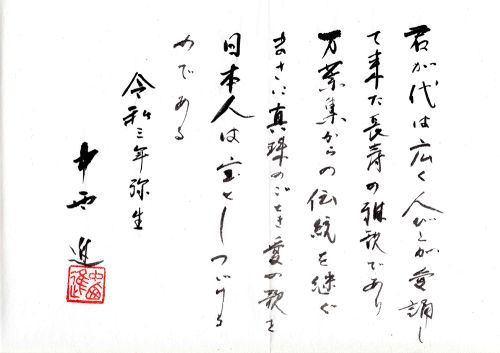 君が代は広く人びとが愛誦し
て来た長寿の雅歌であり
万葉集からの伝統を継ぐ
まさに真珠のごとき愛の歌を
日本人は宝としつづける
のである
令和三年弥生
中西 進
中西
進